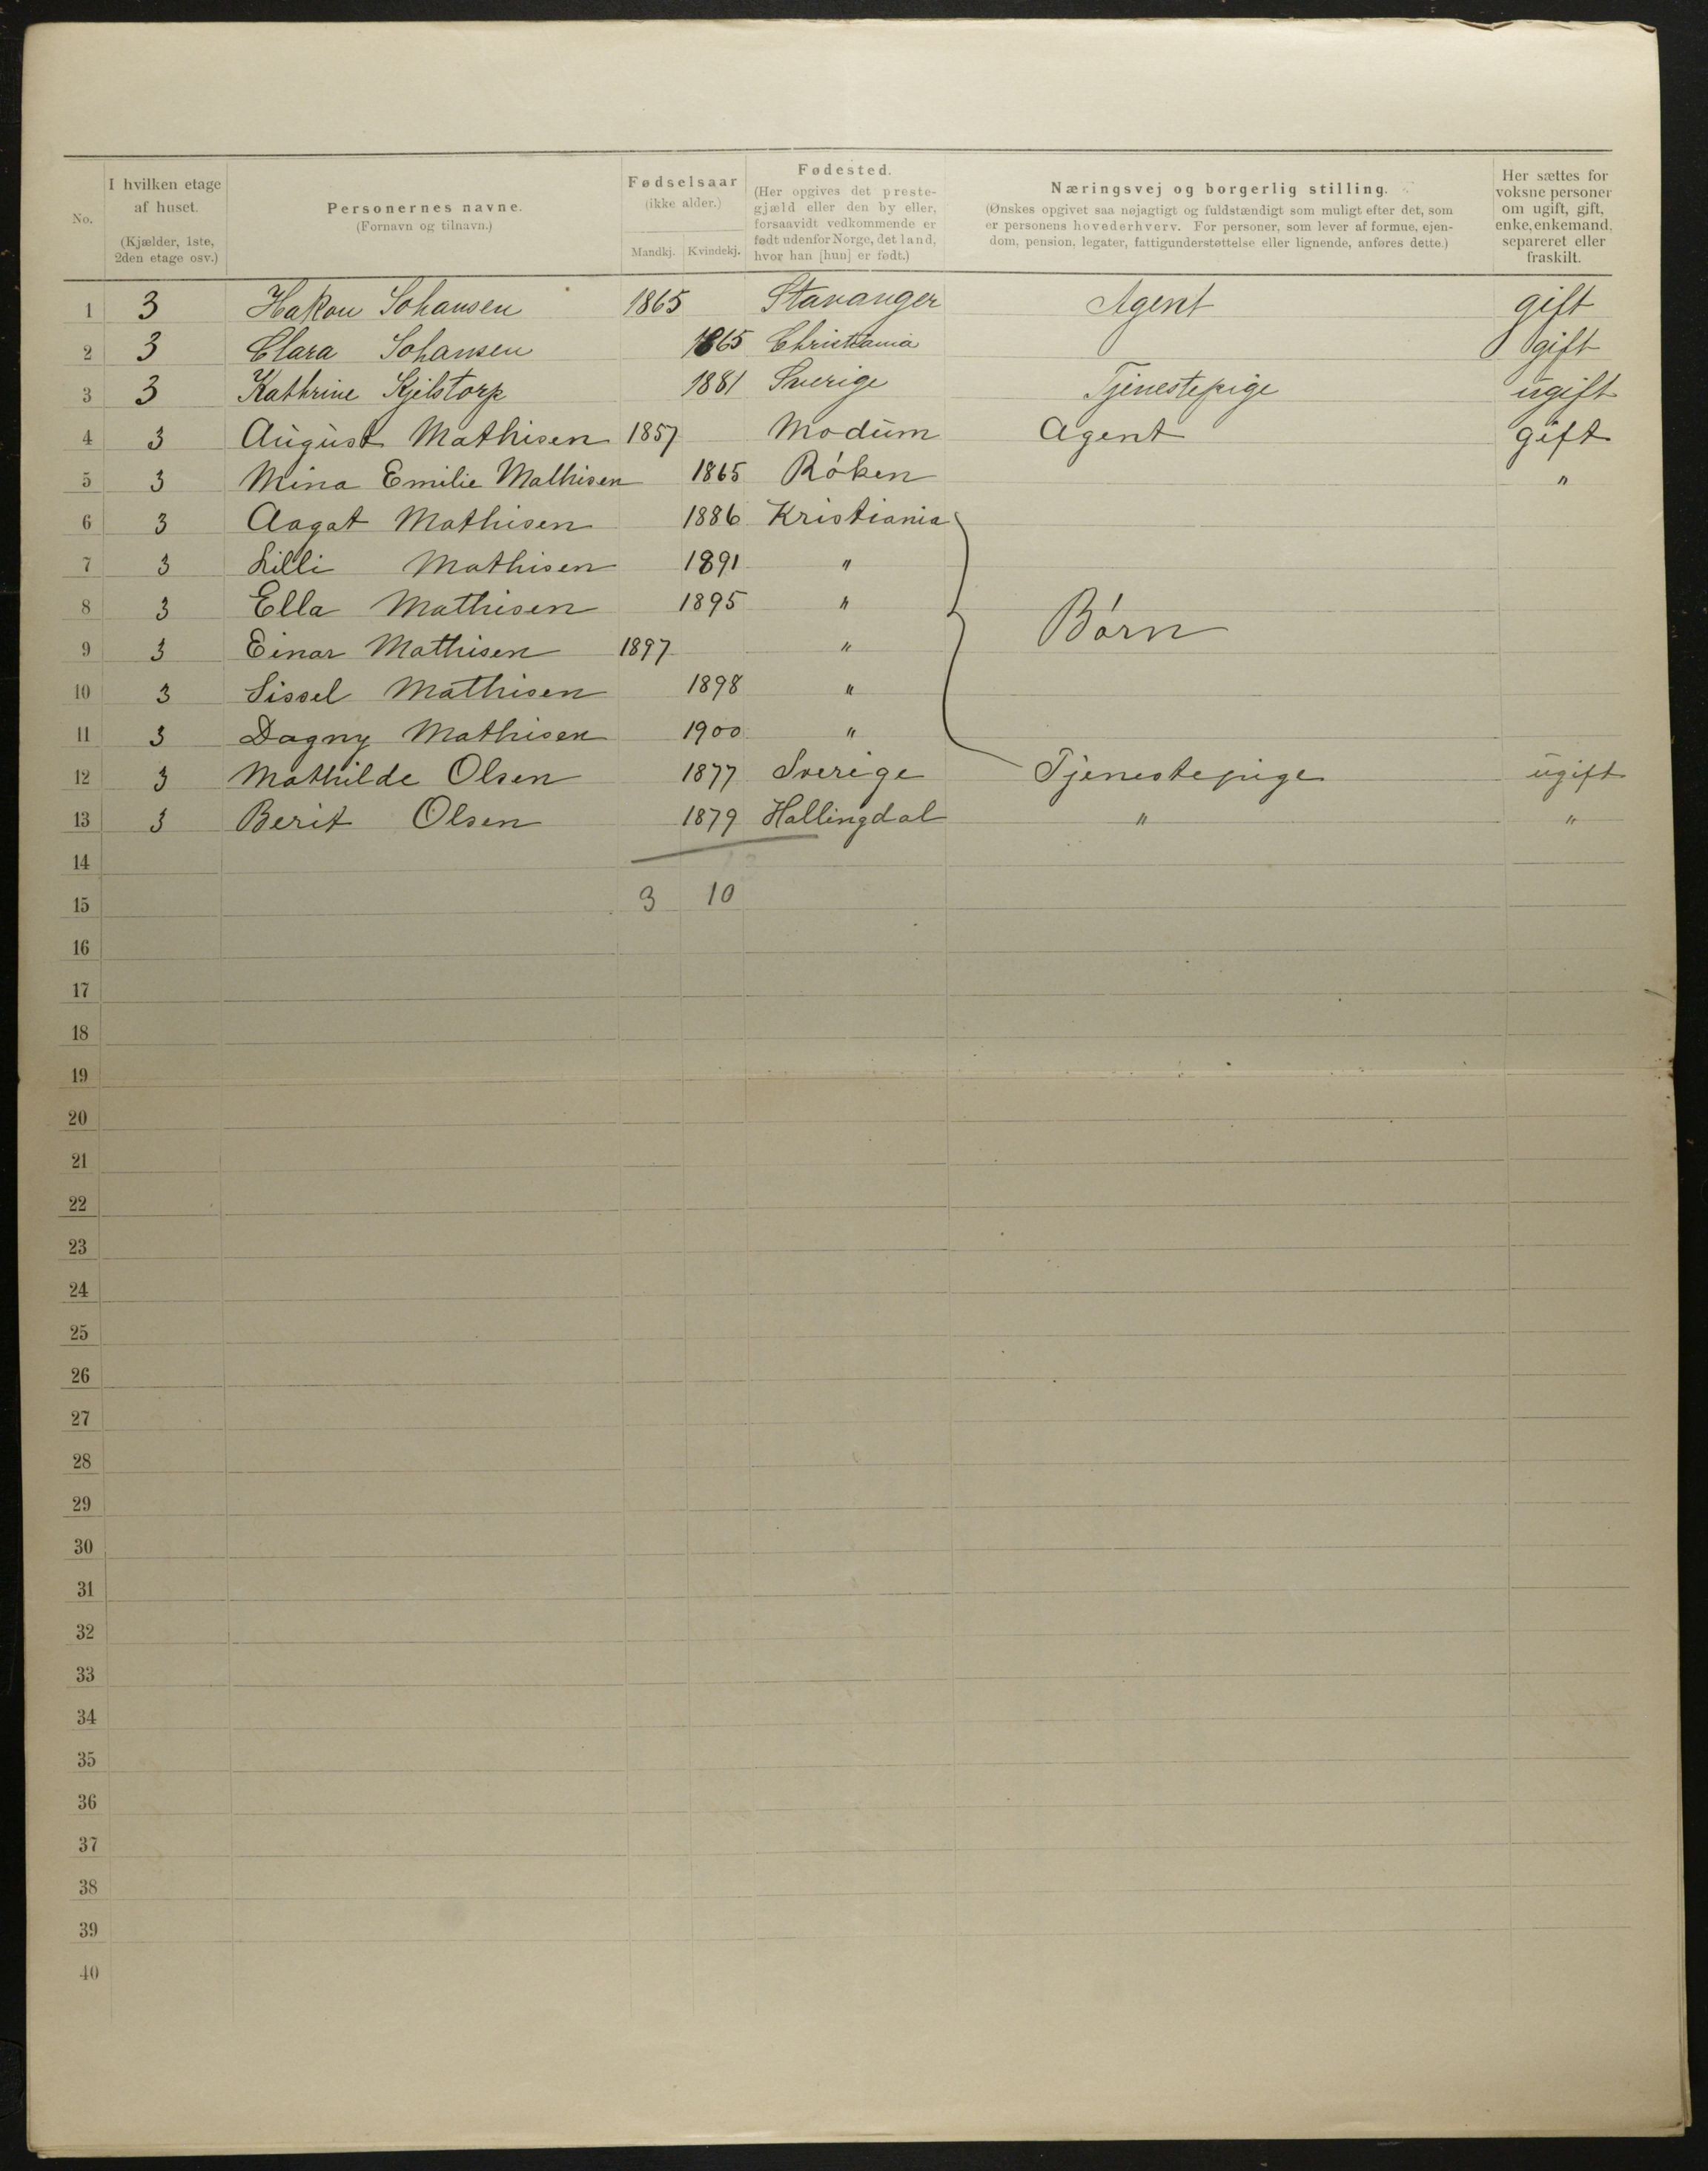 No. | I hvilken etage af huset. (Kjælder, 1ste, 2den etage osv.) | Personernes navne. (Fornavn og tilnavn.) | Fødselsaar (ikke alder.) Mandkj. | Kvindekj. | Fødested. (Her opgives det prestegjæld eller den by eller, forsaavidt vedkommende er født udenfor Norge, det land, hvor han [hun] er født.) | Næringsvej og borgerlig stilling. (Ønskes opgivet saa nøjagtigt og fuldstændigt som muligt efter det, som er personens hovederhverv. For personer, som lever af formue, ejendom, pension, legater, fattigunderstøttelse eller lignende, anføres dette.) | Her sættes for voksne personer om ugift, gift, enke, enkemand, separeret eller fraskilt.
1 3 Hakon Johansen 1865 Stavanger Agent gift
2 3 Clara Johansen 1865 Christiania gift
3 3 Kathrine Kjelstorp 1881 Sverige Tjenestepige ugift
4 3 August Mathisen 1857 Modum Agent gift
5 3 Mina Emilie Mathisen 1865 Røken "
6 3 Aagot Mathisen 1886 Kristiania
7 3 Lilli Mathisen 1891 "
8 3 Ella Mathisen 1895 " Børn
9 3 Einar Mathisen 1897 "
10 3 Sissel Mathisen 1898 "
11 3 Dagny Mathisen 1900 "
12 3 Mathilde Olsen 1877 Sverige Tjenestepige ugift
13 3 Berit Olsen 1879 Hallingdal " "
14
15 3 10
16
17
18
19
20
21
22
23
24
25
26
27
28
29
30
31
32
33
34
35
36
37
38
39
40